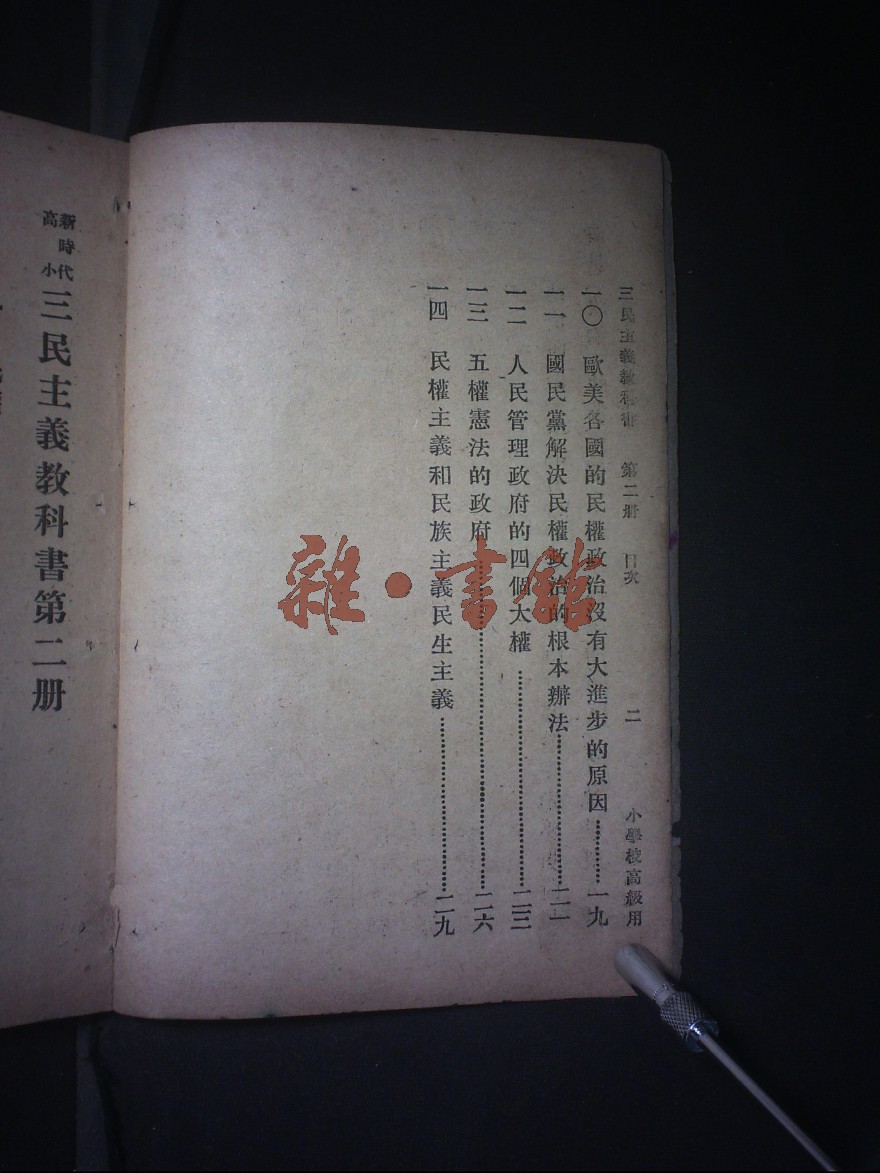 三民主義教科書 第二册 目次 二 小學校高級用
一〇 歐美各國的民權政治沒有大進步的原因……一九
一一 國民黨解決民權政治的根本辦法……二一
一二 人民管理政府的四個大權……二三
一三 五權憲法的政府……二六
一四 民權主義和民族主義民生主義……二九
新時代高小
三民主義教科書第二册
雜·書館